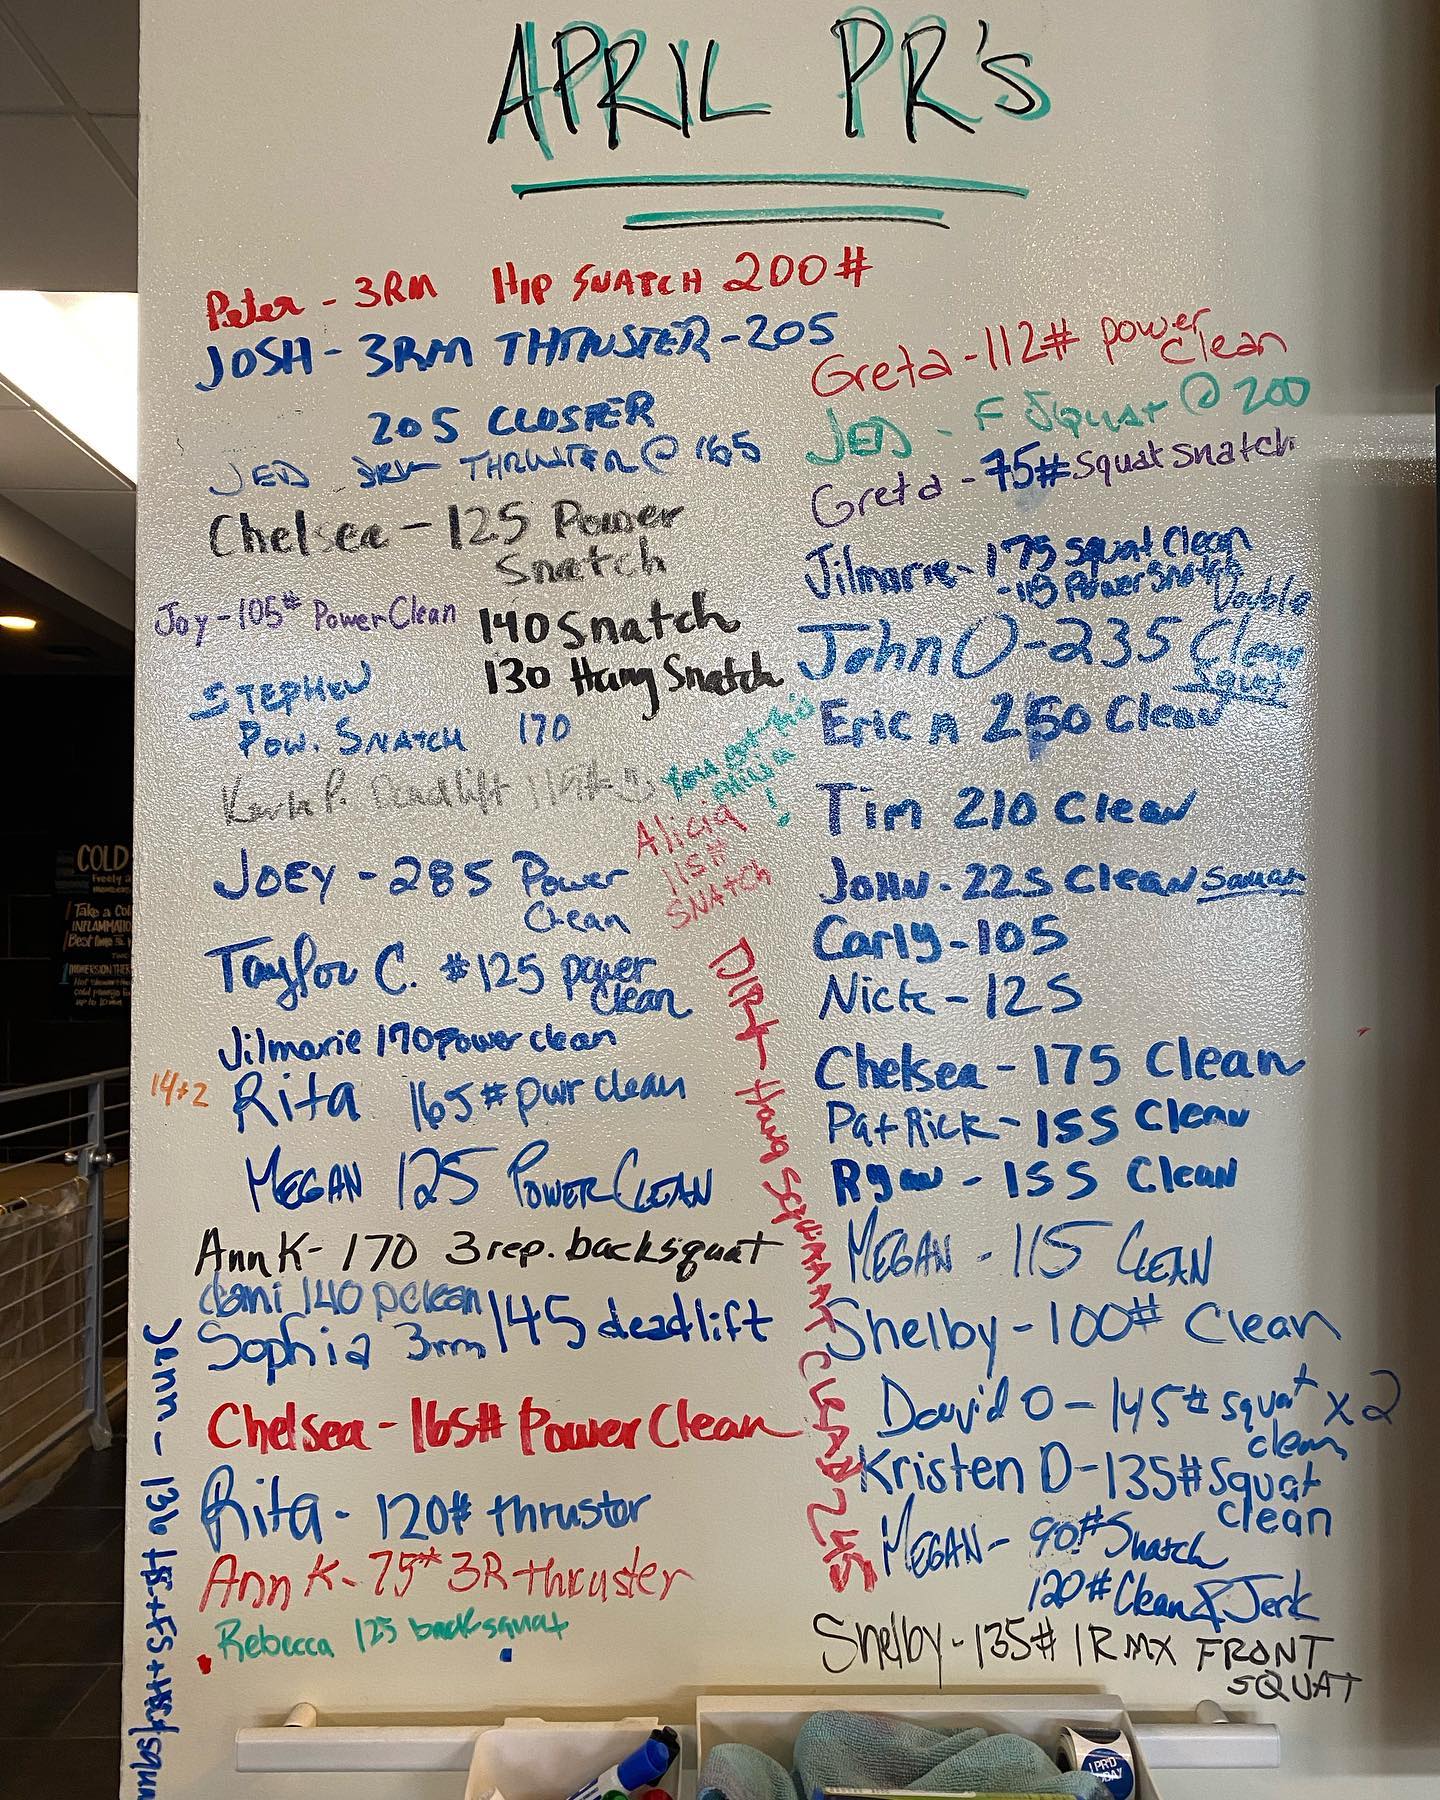 APRIL PR's
Peter - 3RM HIP SNATCH 200#
JOSH - 3RM THRUSTER - 205
205 CLUSTER
JED 3RM THRUSTER @ 165
Chelsea - 125 Power
Snatch
140 Snatch
130 Hang Snatch
Joy - 105# Power Clean
STEPHEN
POW. SNATCH 170
Karla P. Deadlift
You got this
Alicia
!
Alicia
115#
SNATCH
JOEY - 285 Power
Clean
Taylor C. #125 power
clean
Jilmarie 170 power clean
Rita 165# pwr clean
MEGAN 125 POWER CLEAN
Ann K - 170 3 rep. backsquat
Jami 140 pclean
Sophia 3rm 145 deadlift
Chelsea - 165# Power Clean
Rita - 120# thrustor
Ann K - 75# 3R thruster
Rebecca 125 backsquat
Jenn - 136
Hang Squat CLEAN 245
Greta - 112# power
clean
JED - F SQUAT @ 200
Greta - 75# squat snatch
Jilmarie - 175 squat clean
- 115 Power Snatch
John O - 235 Clean
Double
Squat
Eric A 250 Clean
Tim 210 Clean
JOHN - 225 Clean Squat
Carly - 105
Nick - 125
Chelsea - 175 Clean
PatRick - 155 Clean
Ryan - 155 Clean
MEGAN - 115 CLEAN
Shelby - 100# Clean
David O - 145# squat x2
clean
Kristen D - 135# Squat
Clean
MEGAN - 90# Snatch
120# Clean & Jerk
Shelby - 135# 1RMX FRONT
SQUAT
COLD
I PR'D